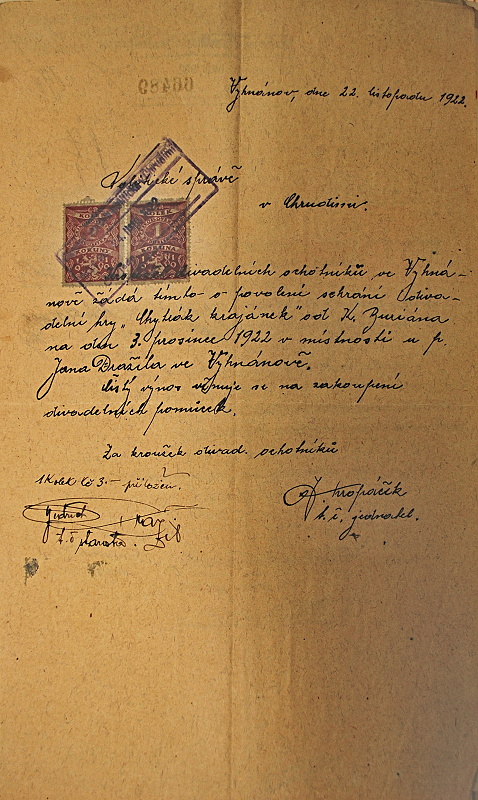 66489
Vyhnánov, dne 22. listopadu 1922.
Politické správě
v Chrudimi.
KOLEK KOLEK
2 1
KORUNY KORUNA
divadelních ochotníků ve Vyhná-
nově žádá tímto o povolení sehrání diva-
delní hry „Chytiák krajánek" od K.
na den 3. prosince 1922 v místnosti u p.
Jana Dražila ve Vyhnánově.
Čistý výnos věnuje se na zakoupení
divadelních pomůcek.
Za kroužek divad. ochotníků
1 Kolek Kč 3.— přiložen.
Chropáčik
t. č. jednatel.
t. č. starosta.